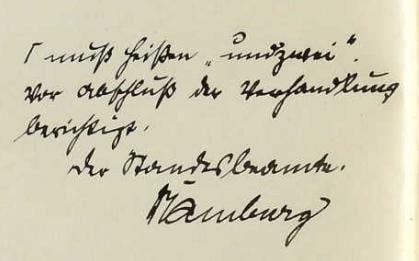 Γ muß heißen „undzwei“.
Vor Abschluß der Verhandlung
berichtigt.
Der Standesbeamte.